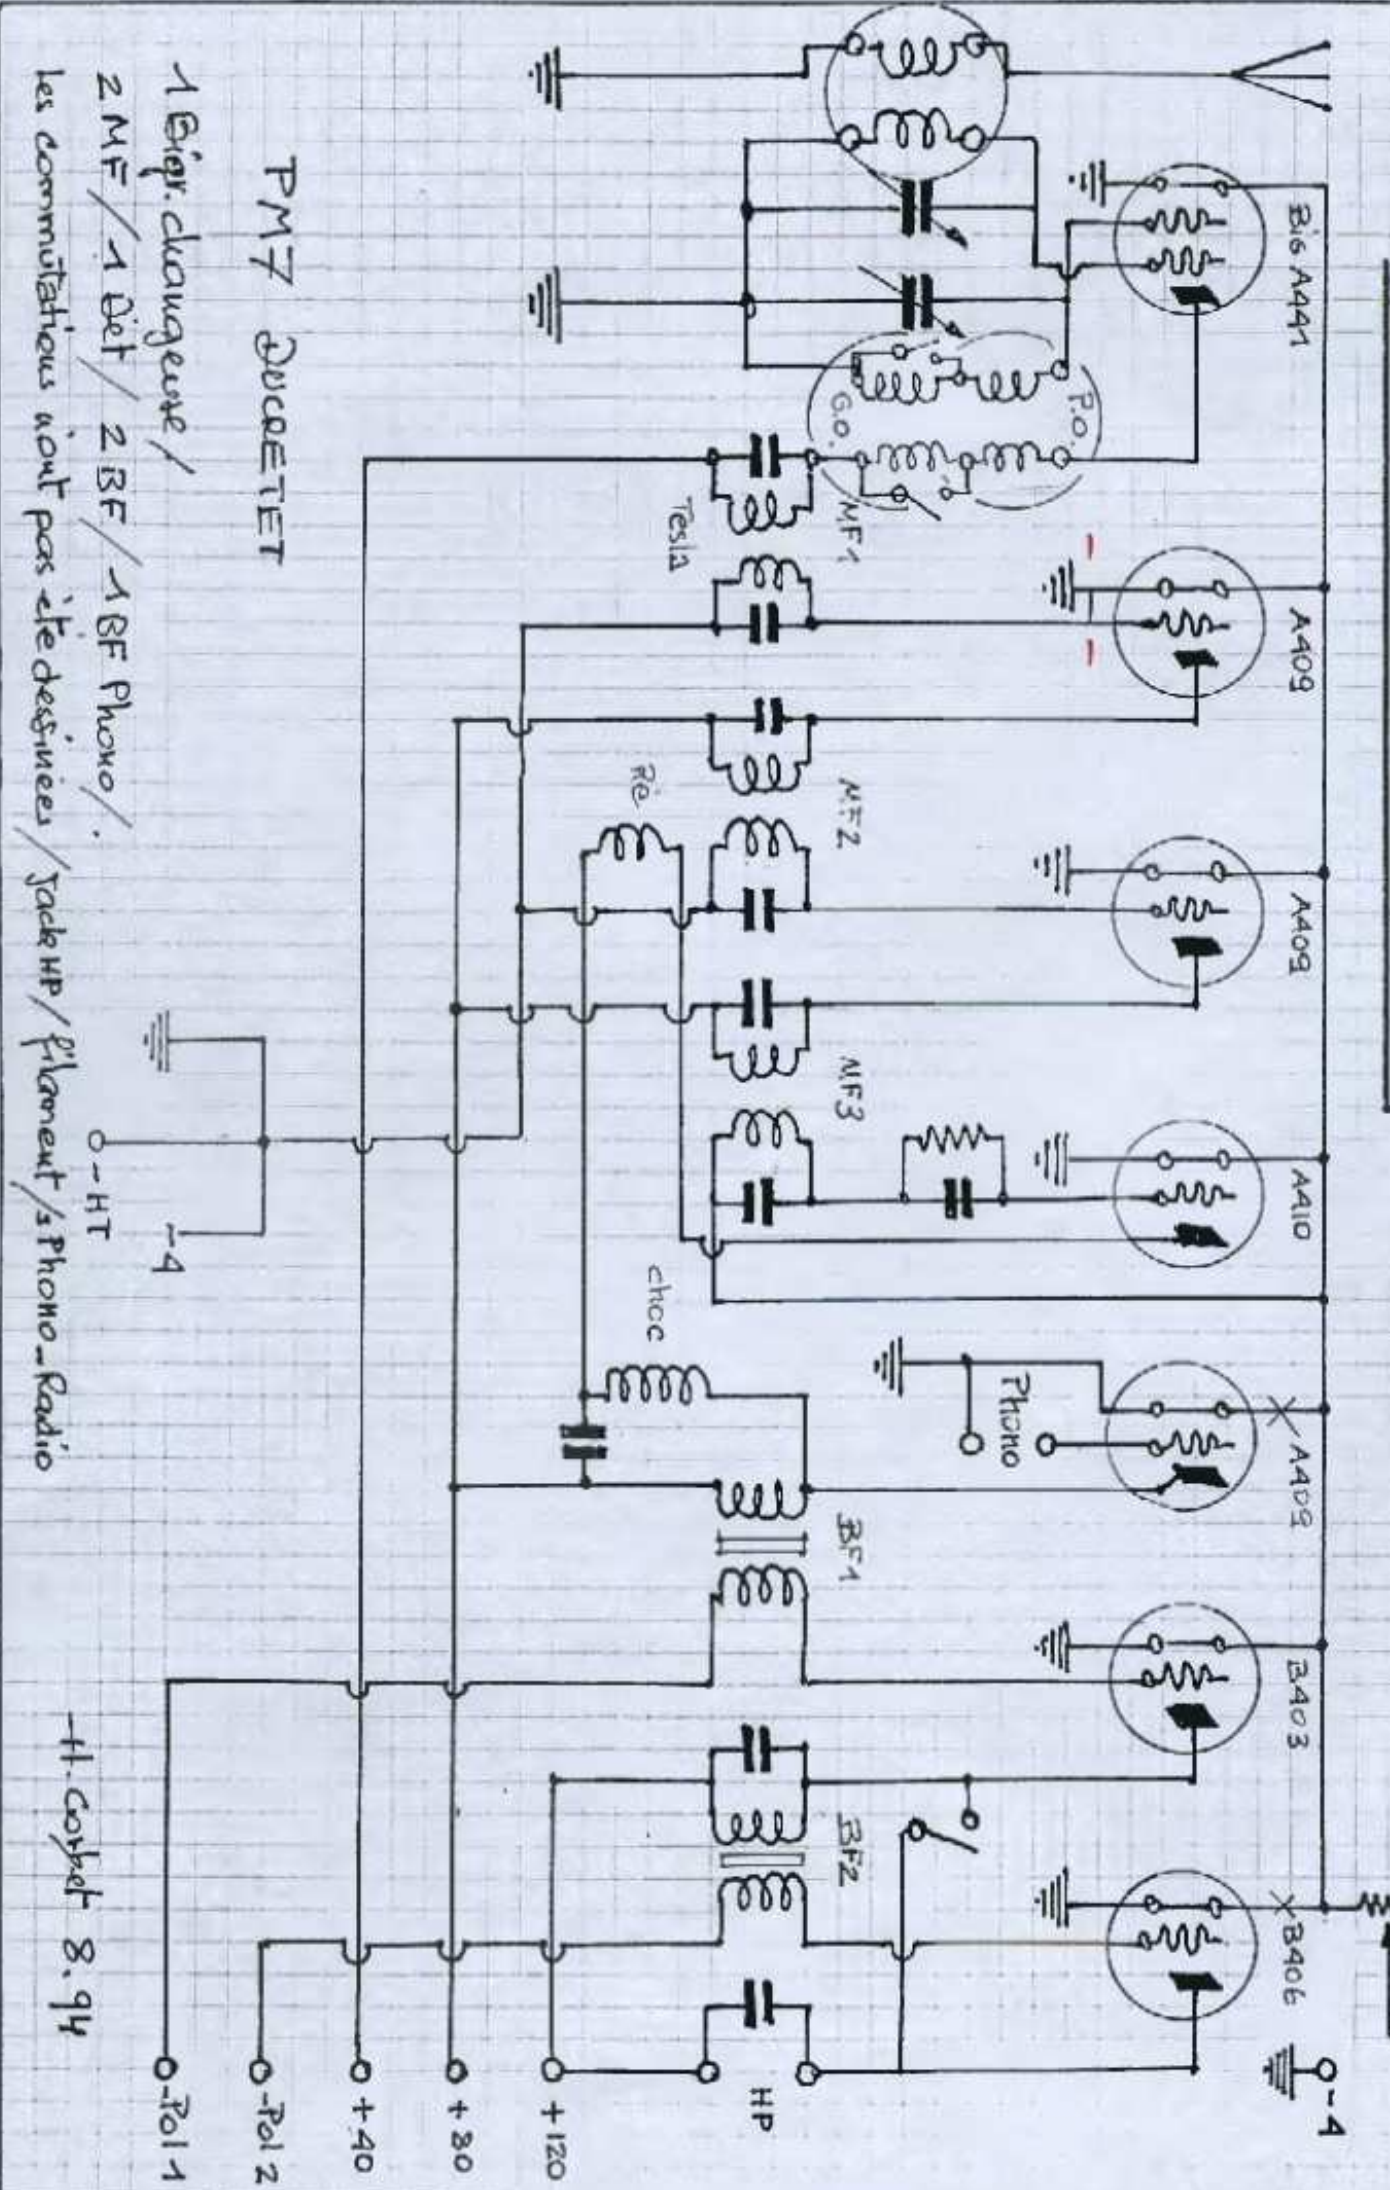 Big A441
A409
A409
A410
A409
B403
B406
-4
P.O.
G.O.
MF1
Tesla
MF2
Ré
MF3
choc
Phono
BF1
BF2
HP
+120
+80
+40
-Pol 2
-Pol 1
-HT
-4
PM7 DUCRETET
1 Bigr. changeuse /
2 MF / 1 Dét / 2 BF / 1 BF Phono / .
Les commutations n'ont pas été dessinées / Jack HP / filament / s Phono - Radio
- H. Corbet 8.94